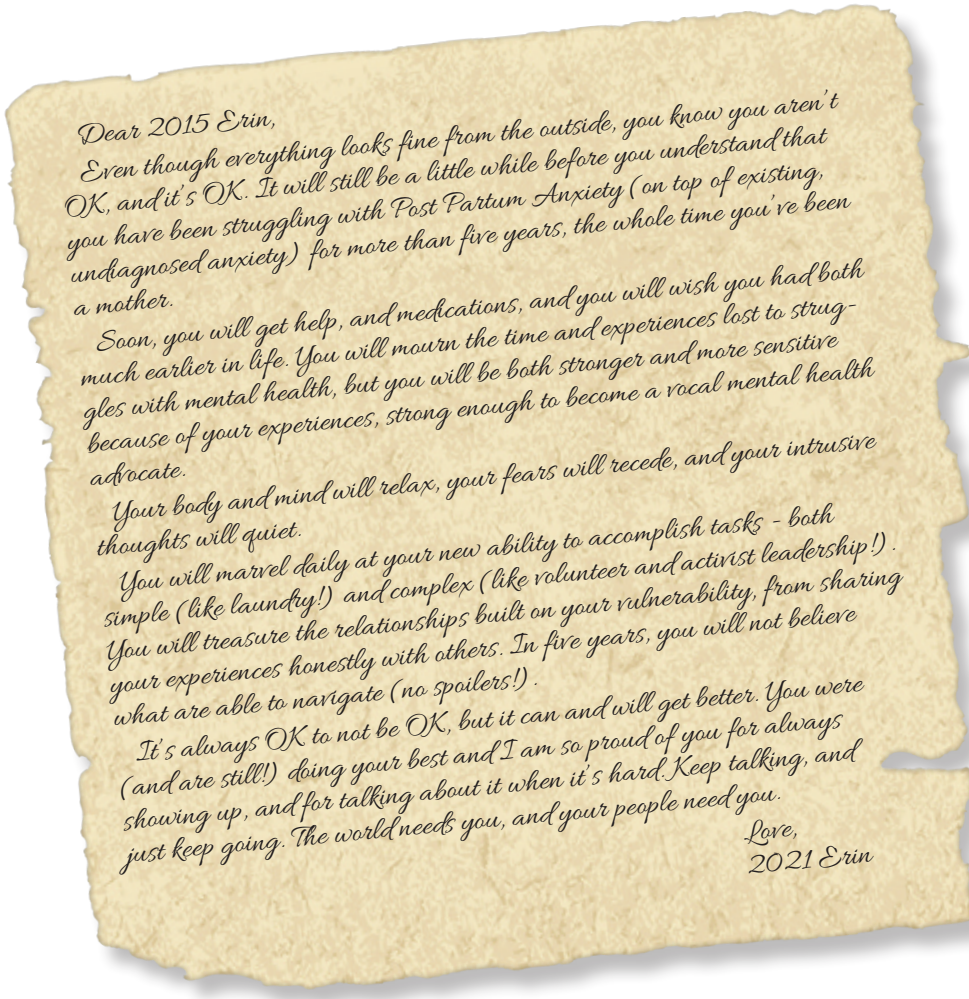 Dear 2015 Erin,
Even though everything looks fine from the outside, you know you aren't
OK, and it's OK. It will still be a little while before you understand that
you have been struggling with Post Partum Anxiety (on top of existing,
undiagnosed anxiety) for more than five years, the whole time you've been
a mother.
Soon, you will get help, and medications, and you will wish you had both
much earlier in life. You will mourn the time and experiences lost to strug-
gles with mental health, but you will be both stronger and more sensitive
because of your experiences, strong enough to become a vocal mental health
advocate.
Your body and mind will relax, your fears will recede, and your intrusive
thoughts will quiet.
You will marvel daily at your new ability to accomplish tasks - both
simple (like laundry!) and complex (like volunteer and activist leadership!).
You will treasure the relationships built on your vulnerability, from sharing
your experiences honestly with others. In five years, you will not believe
what are able to navigate (no spoilers!).
It's always OK to not be OK, but it can and will get better. You were
(and are still!) doing your best and I am so proud of you for always
showing up, and for talking about it when it's hard. Keep talking, and
just keep going. The world needs you, and your people need you.
Love,
2021 Erin